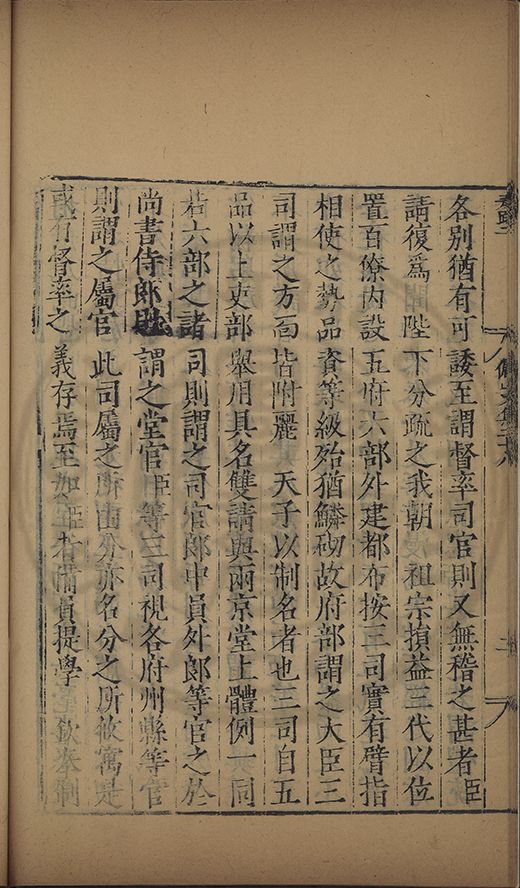 各別猶有可諉至謂督率司官則又無稽之甚者臣
請復爲陛下分疏之我朝祖宗損益三代以位
置百僚內設五府六部外建都布按三司實有臂指
相使之勢品資等級殆猶鱗砌故府部謂之大臣三
司謂之方面皆附麗天子以制名者也三司自五
品以上吏部舉用具名雙請與兩京堂上體例一同
若六部之諸司則謂之司官郎中員外郎等官之於
尚書侍郎謂之堂官臣等三司視各府州縣等官
則謂之屬官此司屬之所由分亦名分之所攸寓是
督率之義存焉至如臣者備員提學欽奉制